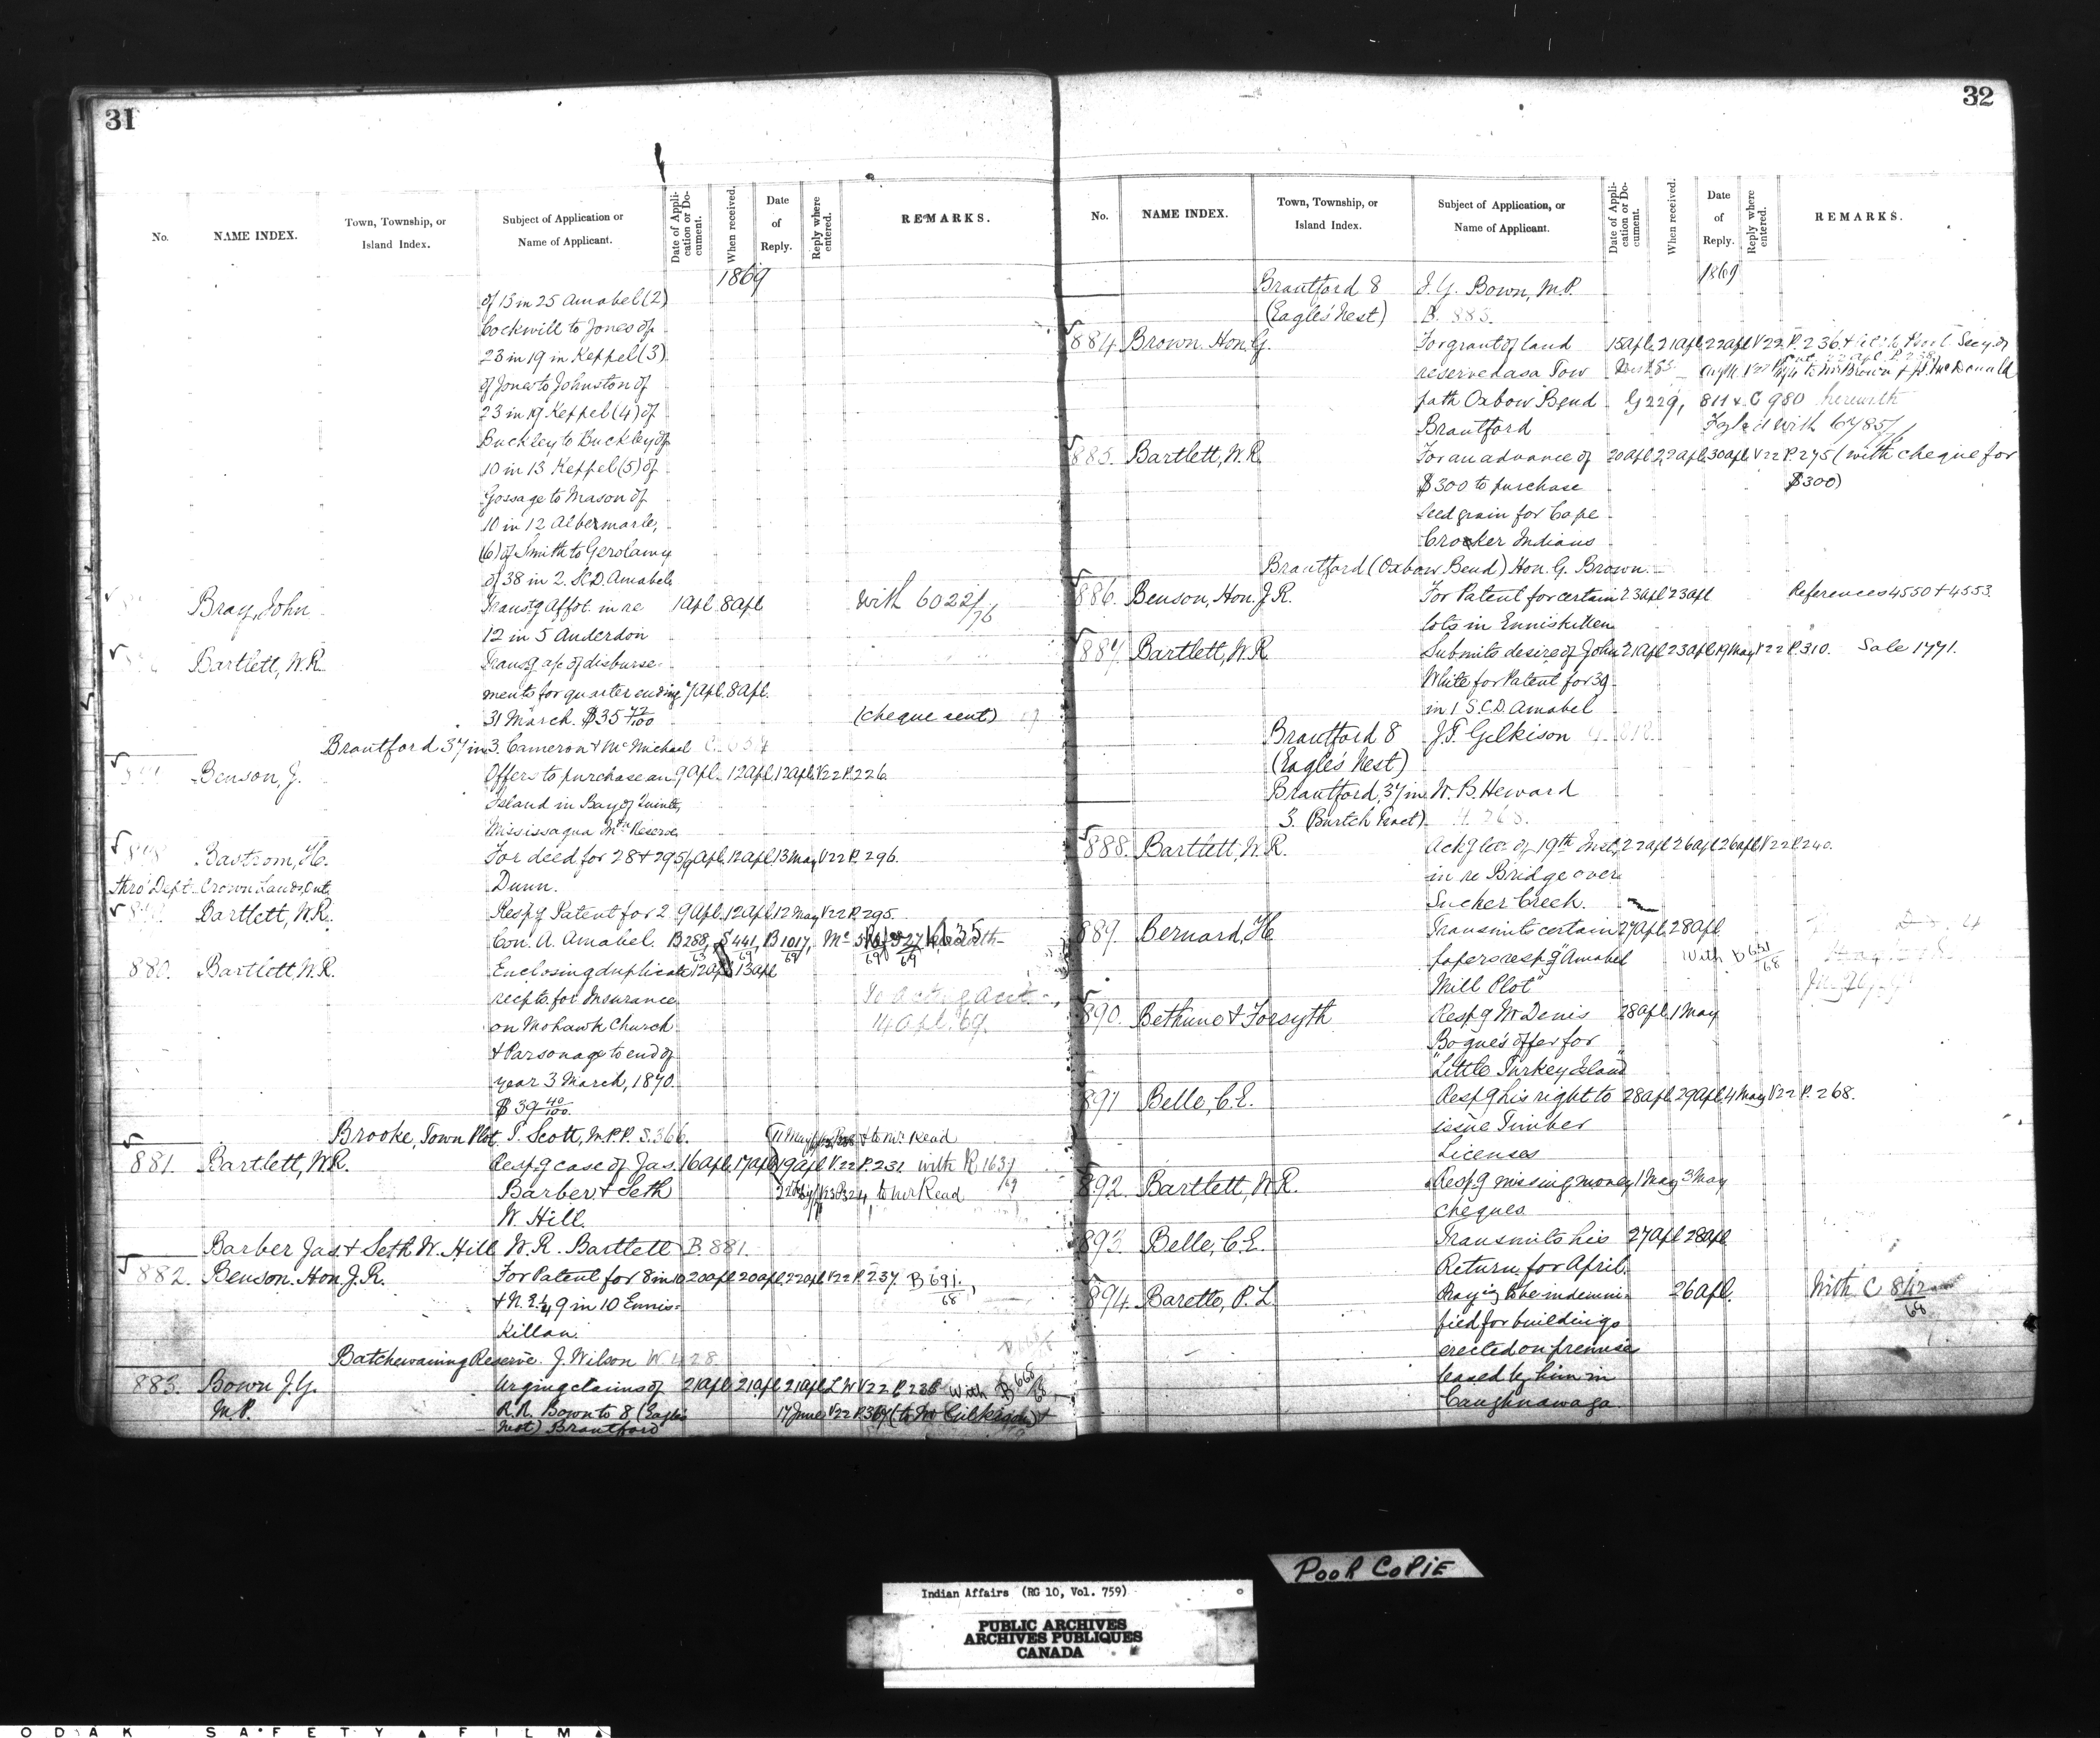 31
No.
NAME INDEX.
Town, Township, or
Island Index.
Subject of Application or
Name of Applicant.
Date of Appli-
cation or Do-
cument.
When received.
Date
of
Reply.
Reply where
entered.
REMARKS.
1869
of 15 in 25 Amabel (2)
Cockwill to Jones of
23 in 19 in Keppel (3)
of Jones to Johnston of
23 in 19 Keppel (4) of
Buckley to Buckley of
10 in 13 Keppel (5) of
Gossage to Mason of
10 in 12 Albermarle,
(6) of Smith to Gerolamy
of 38 in 2. S.C.D. Amabel
Bray, John Transg Affdt. in re 1 Apl. 8 Apl with 6022/76
12 in 5 Anderdon
Bartlett, W.R. Transg a/c of disburse-
ments for quarter ending 7 Apl. 8 Apl.
31 March. $35 42/100 (cheque sent)
Brantford 37 in 3. Cameron & McMichael
Benson, J. Offers to purchase an 9 Apl. 12 Apl. 12 Apl. V22 P. 226.
Island in Bay of Quinte,
Mississaqua Reserve
Bastrom, H. For deed for 28 & 29 5/9 Apl. 12 Apl. 13 May V22 P. 296.
thro' Dept. Crown Lands, Ont. Dunn.
Bartlett, W.R. Resp'g Patent for 2 9 Apl. 12 Apl. 12 May V22 P. 295.
Con. A. Amabel. B 258/63, S 441/69, B 1017/69,
880. Bartlett W.R. Enclosing duplicate 12 Apl 13 Apl
recpts. for Insurance To acting Acct
on Mohawk Church 14 Apl. 69.
& Parsonage to end of
year 3 March, 1870.
$39 40/100.
Brooke, Town Plot. T. Scott, M.P.P. S. 366. & to Mr Read
881. Bartlett, W.R. Resp'g case of Jas. 16 Apl. 17 Apl. 19 Apl. V22 P. 231 with R 163/69
Barber & Seth to Mr Read
W. Hill.
Barber Jas. & Seth W. Hill W.R. Bartlett B. 881.
882. Benson. Hon. J.R. For Patent for 8 in 10 20 Apl 20 Apl 22 Apl V22 P. 237 B 691/68,
& N.E. 1/4 9 in 10 Ennis-
killen
Batchewaning Reserve. J. Wilson W 428.
883. Bown J.Y. Urging claims of 21 Apl. 21 Apl 21 Apl L W V22 P. 235 with B 668/68
M.P. R.R. Bown to 8 (Eagles 17 June V22 P. 367 (to Mr Gilkison) &
Nest) Brantford
32
No.
NAME INDEX.
Town, Township, or
Island Index.
Subject of Application, or
Name of Applicant.
Date of Appli-
cation or Do-
cument.
When received.
Date
of
Reply.
Reply where
entered.
REMARKS.
1869
Brantford 8 J.Y. Bown, M.P.
(Eagle's Nest) B. 883.
884. Brown. Hon. G. For grant of land 15 Apl. 21 Apl. 22 Apl. V22 P. 236
reserved as a Tow to Mr Brown & McDonald
path Oxbow Bend G 229, 811 & C 980 herewith
Brantford
885. Bartlett, W.R. For an advance of 20 Apl. 22 Apl. 30 Apl. V22 P. 275 (with cheque for
$300 to purchase $300)
seed grain for Cape
Crocker Indians
Brantford (Oxbow Bend) Hon. G. Brown.
886. Benson, Hon. J.R. For Patent for certain 23 Apl. 23 Apl References 4550 & 4553.
lots in Enniskillen
887. Bartlett, W.R. Submits desire of John 21 Apl. 23 Apl. 19 May V22 P. 310. Sale 1771.
White for Patent for 39
in 1 S.C.D. Amabel
Brantford 8 J.T. Gilkison
(Eagle's Nest)
Brantford, 37 in W.B. Heward
3. (Burtch Tract)
888. Bartlett, W.R. Ack'g lec. of 19th Inst. 22 Apl 26 Apl 26 Apl V22 P. 240.
in re Bridge over
Sucker Creek.
889. Bernard, H. Transmits certain 27 Apl 28 Apl.
papers resp'g "Amabel With B 651/68
Mill Plot"
890. Bethune & Forsyth Resp'g Mr Denis 28 Apl. 1 May
Bogue's offer for
"Little Turkey Island"
891 Belle, C.E. Resp'g his right to 28 Apl. 29 Apl. 4 May V22 P. 268.
issue Timber
Licenses
892. Bartlett, W.R. Resp'g missing money 1 May 3 May
cheques
893. Belle, C.E. Transmits his 27 Apl 28 Apl
Return for April.
894. Baretto, P.L. Praying to be indemni- 26 Apl. With C 842/68
fied for buildings
erected on premises
leased by him in
Caughnawaga
POOR COPIE
Indian Affairs (RG 10, Vol. 759)
PUBLIC ARCHIVES
ARCHIVES PUBLIQUES
CANADA
ODAK SAFETY FILM